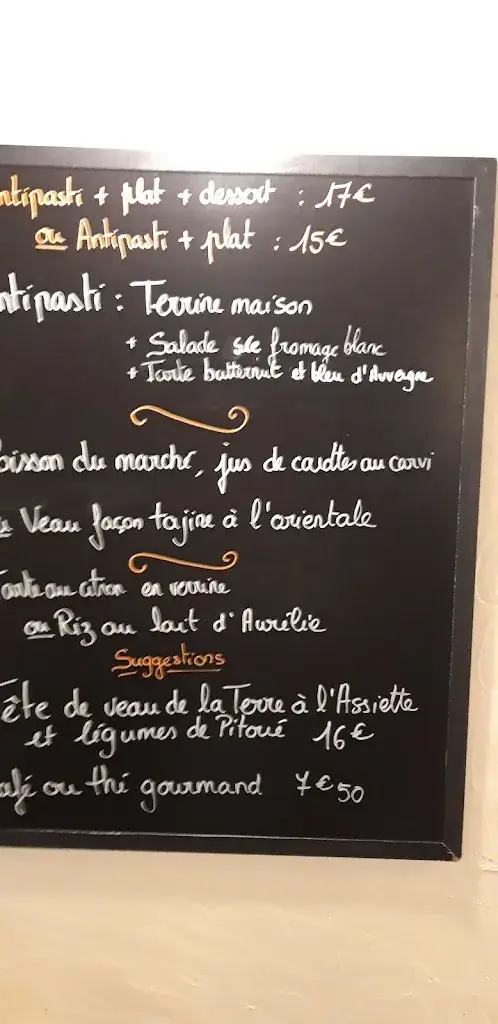 ntipasti + plat + dessert : 17€
ou Antipasti + plat : 15€
ntipasti : Terrine maison
+ Salade sce fromage blanc
+ Tarte butternut et bleu d'Auvergne
oisson du marché, jus de carottes au carvi
Veau façon tajine à l'orientale
arte au citron en verrine
ou Riz au lait d'Aurélie
Suggestions
ête de veau de la Terre à l'Assiette
et légumes de Pitoué 16€
afé ou thé gourmand 7€50